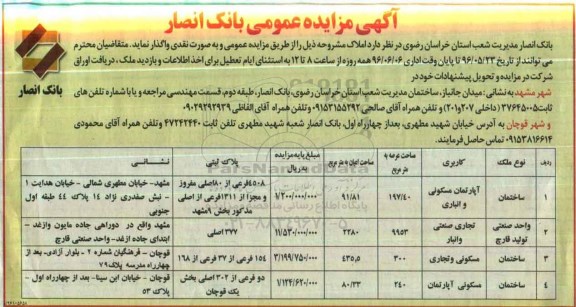 آگهی مزایده عمومی بانک انصار
بانک انصار
بانک انصار مدیریت شعب استان خراسان رضوی در نظر دارد املاک مشروحه ذیل را از طریق مزایده عمومی و به صورت نقدی واگذار نماید. متقاضیان محترم
می توانند از تاریخ ۹۶/۰۵/۲۳ تا پایان وقت اداری ۹۶/۰۶/۰۶ همه روزه از ساعت ۸ تا ۱۲ به استثنای ایام تعطیل برای اخذ اطلاعات و بازدید ملک، دریافت اوراق
شرکت در مزایده و تحویل پیشنهادات خود در
شهر مشهد به نشانی: میدان جانباز، ساختمان مدیریت شعب استان خراسان رضوی، بانک انصار، طبقه دوم، قسمت مهندسی مراجعه و یا با شماره تلفن های
ثابت ۳۷۶۴۵۰۰۵ (داخلی ۲۰۷ و ۲۰۱) و تلفن همراه آقای صالحی ۰۹۱۵۳۱۵۵۲۹۲ و تلفن همراه آقای الفاظی ۰۹۰۲۹۲۹۲۹۳۹
و شهر قوچان به آدرس خیابان شهید مطهری، بعد از چهارراه اول، بانک انصار شعبه شهید مطهری تلفن ثابت ۴۷۲۴۲۴۴۰ و تلفن همراه آقای محمودی
۰۹۱۵۳۸۱۶۶۱۴ تماس حاصل فرمایند.
ردیف نوع ملک کاربری مساحت عرصه به متر مربع مساحت اعیان به متر مربع مبلغ پایه مزایده به ریال پلاک ثبتی نشانی
۱ ساختمان آپارتمان مسکونی و انباری ۱۹۷/۴۰ ۹۱/۸۱ ۱/۲۰۰/۰۰۰/۰۰۰ ۴۵۰۸ فرعی از ۸۰ اصلی مفروز و مجزا از ۱۳۱۱ فرعی از اصلی مذکور بخش ۹ مشهد مشهد- خیابان مطهری شمالی - خیابان هدایت ۱ - نبش صفدری نژاد ۱۴ پلاک ۴۴ طبقه اول جنوبی
۲ واحد صنعتی تولید قارچ تجاری صنعتی و انبار ۹۹۵۳ ۲۲۸۰ ۱۱/۵۳۰/۰۰۰/۰۰۰ ۳۷۷ اصلی مشهد واقع در دوراهی جاده مایون و ازغد - ابتدای جاده ازغد- واحد صنعتی قارچ
۳ ساختمان مسکونی و تجاری ۳۰۰ ۴۳۵,۵ ۳/۱۹۹/۷۵۰/۰۰۰ ۱۵۴ فرعی از ۳۷ فرعی از ۱۶۸ قوچان - فرهنگیان شماره ۲ - بلوار آزادی- بعد از چهارراه مدرسه پلاک ۷۹
۴ ساختمان مسکونی آپارتمان ۲۴۰ ۸۰/۳۳ ۱/۱۲۴/۶۲۰/۰۰۰ دو فرعی از ۳۰۲ اصلی بخش یک قوچان قوچان - خیابان ابن سینا- بعد از چهارراه اول - پلاک ۵۳